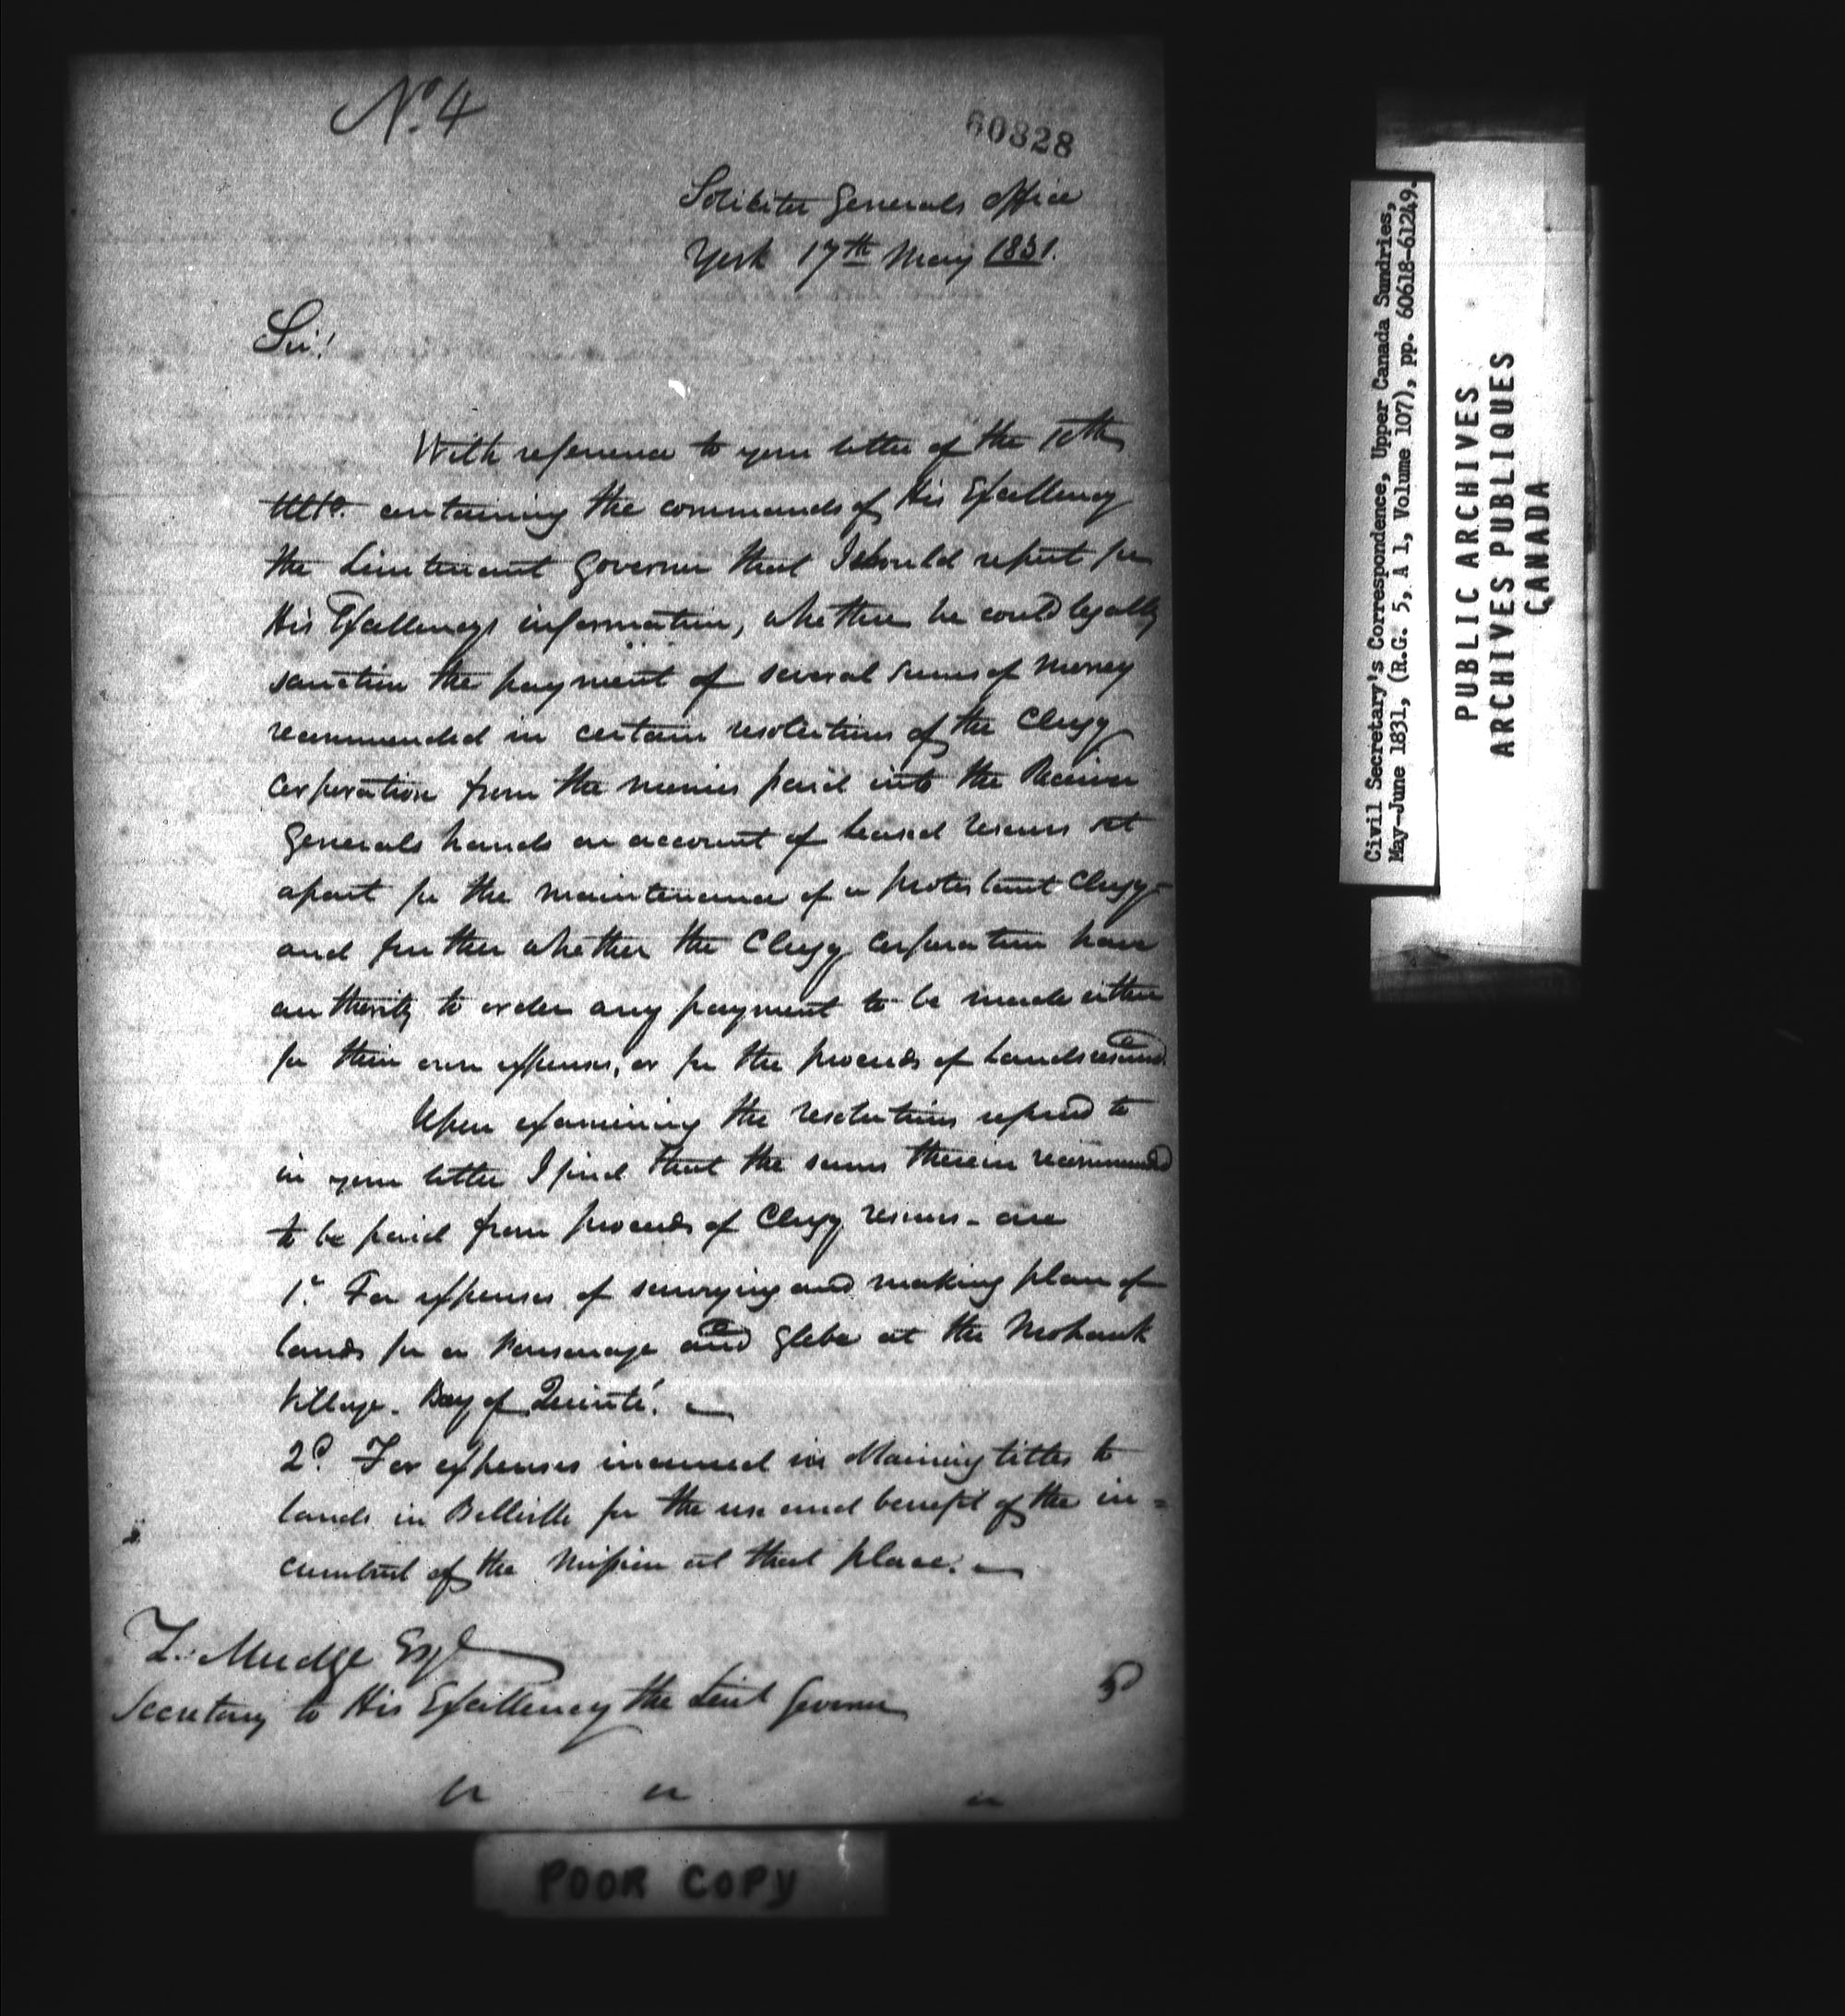 No. 4
60828
Solicitor Generals Office
York 17th May 1831.
Sir!
With reference to your letter of the 10th
Ulto. containing the commands of His Excellency
the Lieutenant Governor that I should report for
His Excellencys information, whether he could legally
sanction the payment of several sums of money
recommended in certain resolutions of the Clergy
Corporation from the monies paid into the Receiver
Generals hands on account of leased reserves set
apart for the maintenance of a protestant Clergy-
and further whether the Clergy Corporation have
authority to order any payment to be made either
for their own expenses, or for the proceeds of Lands reserved.
Upon examining the resolutions referred to
in your letter I find that the sums therein recommended
to be paid from proceeds of Clergy reserves - are
1st. For expenses of surveying and making plan of
lands for a Parsonage and glebe at the Mohawk
Village. Bay of Quinté. -
2d. For expenses incurred in obtaining titles to
lands in Belleville for the use and benefit of the in=
cumbent of the Mission at that place. -
Z. Mudge Esqr
Secretary to His Excellency the Lieut Governor
POOR COPY
Civil Secretary's Correspondence, Upper Canada Sundries,
May-June 1831, (R.G. 5, A 1, Volume 107), pp. 60618-61249.
PUBLIC ARCHIVES
ARCHIVES PUBLIQUES
CANADA